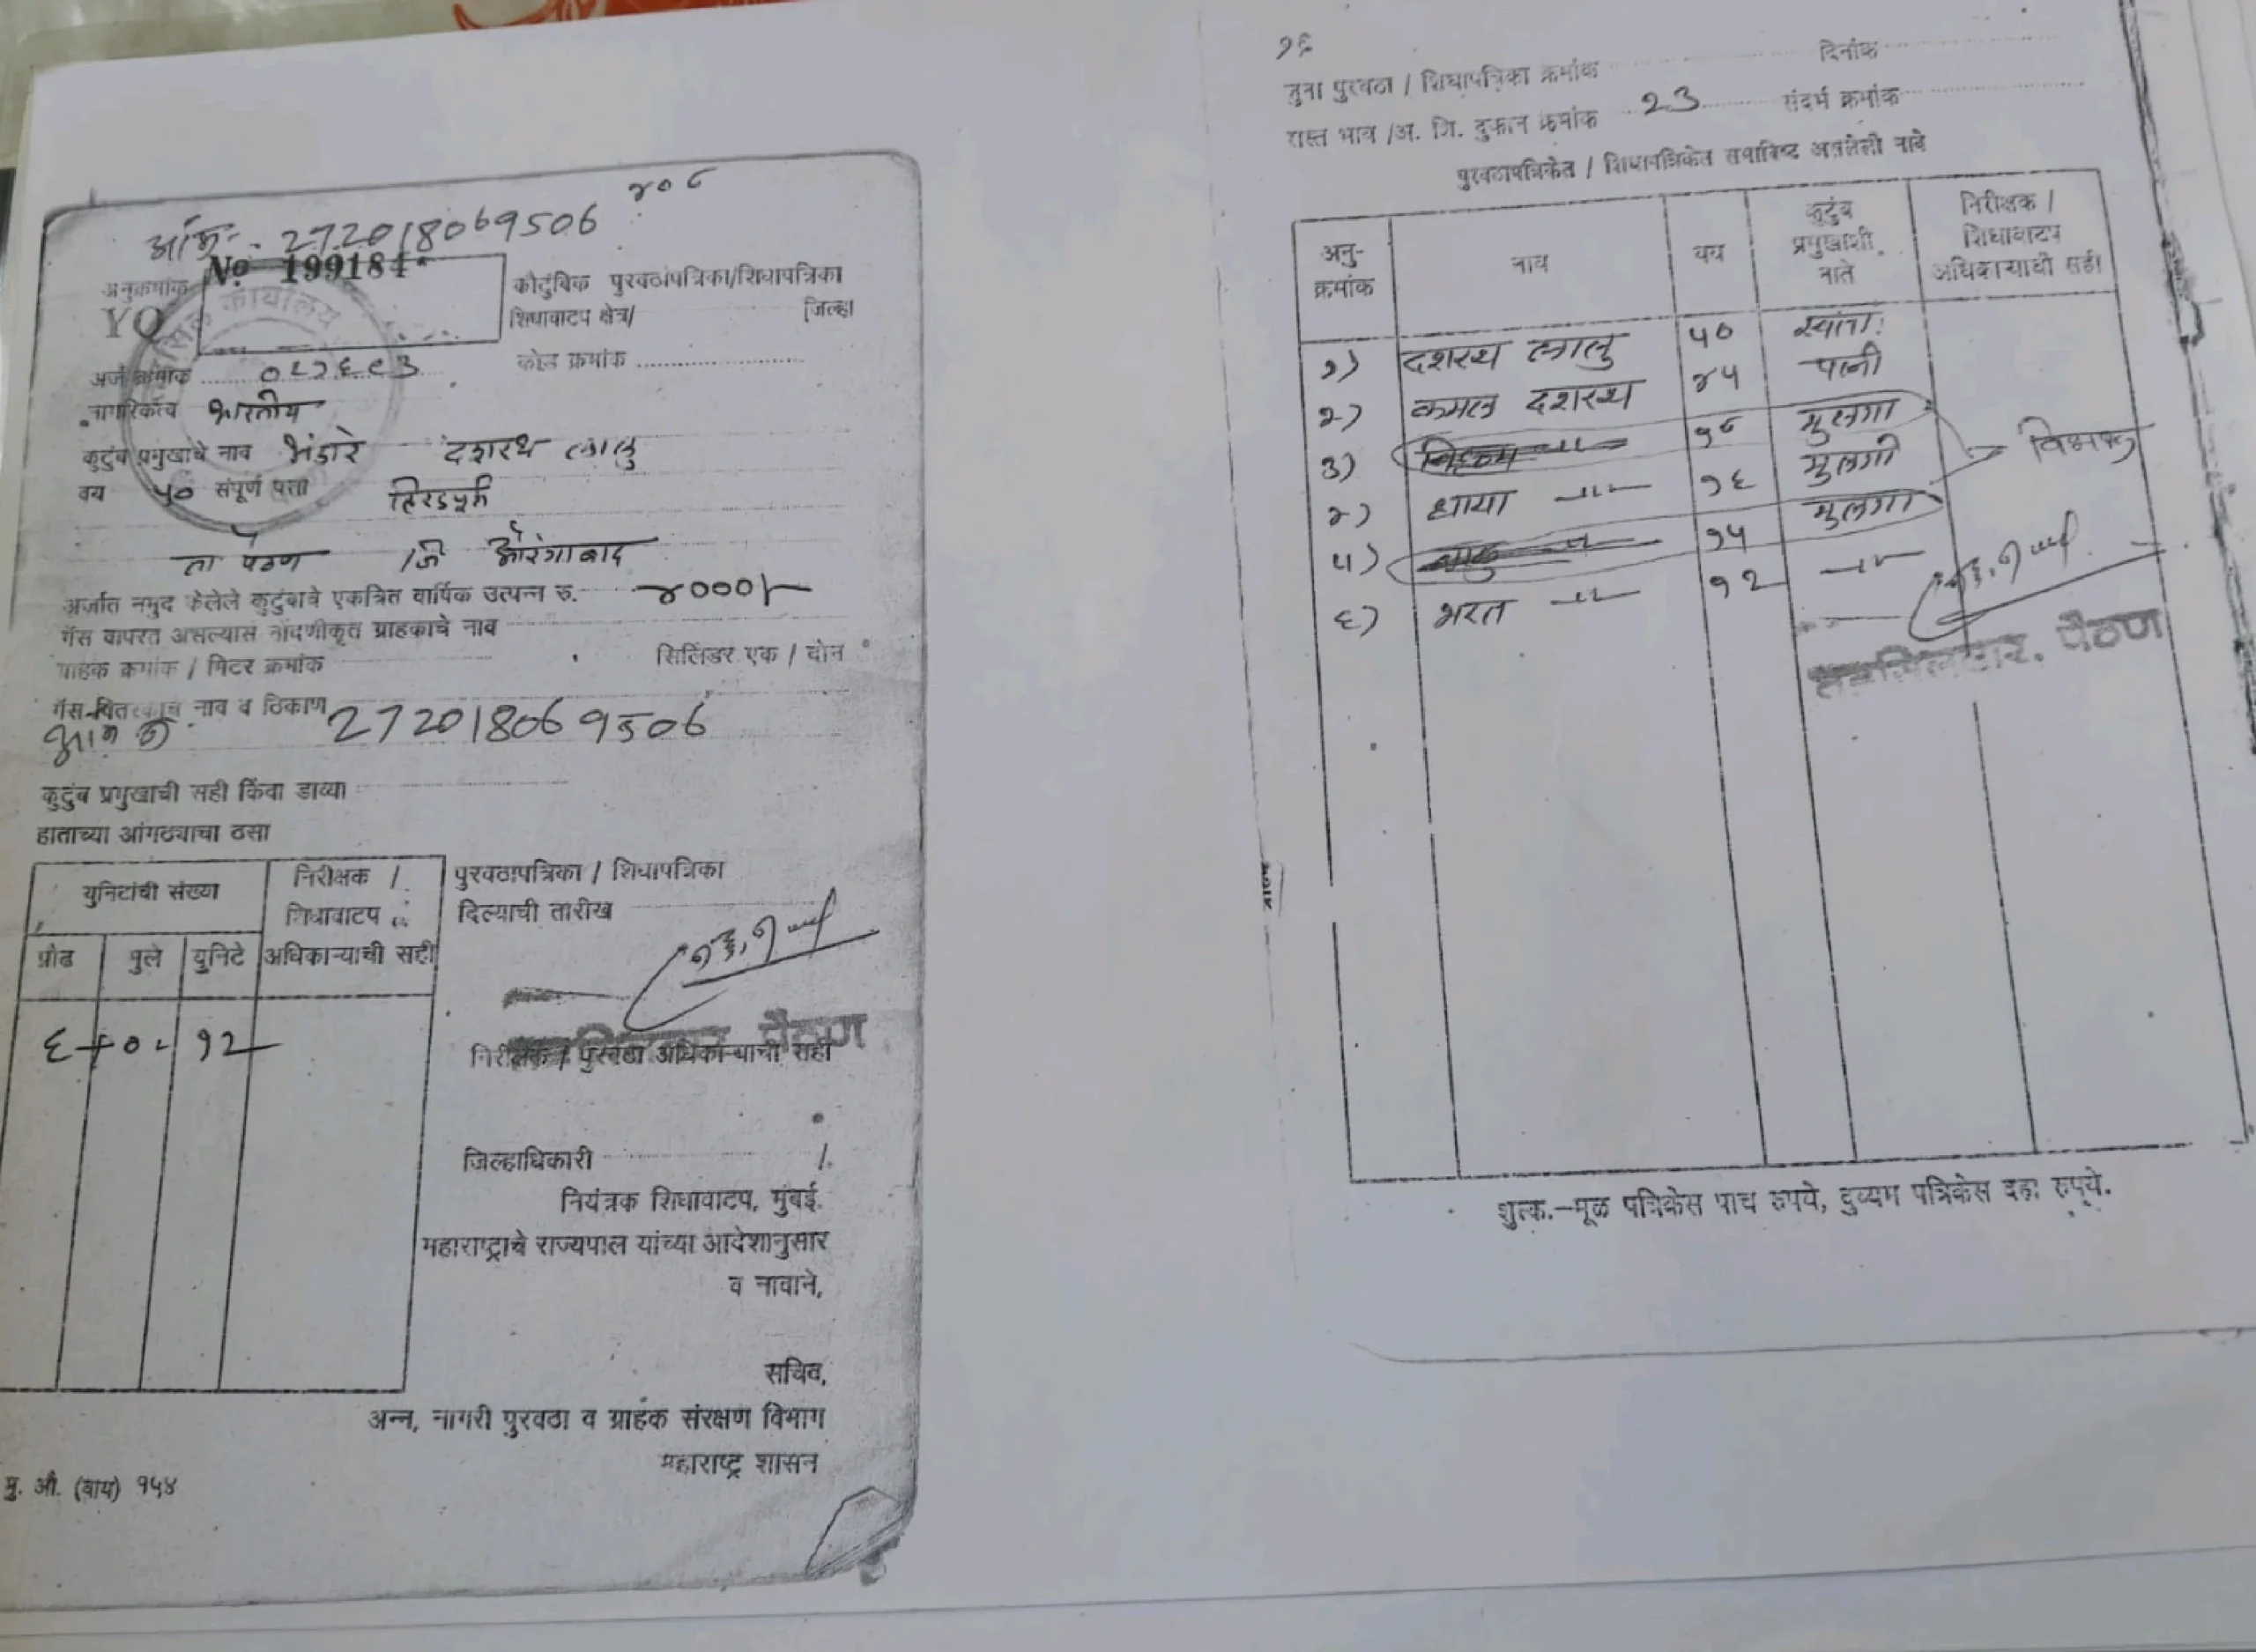 ४०८
ऑक्र- 272018069506
अनुक्रमांक No 199184
YQ
कौटुंबिक पुरवठापत्रिका/शिधापत्रिका
शिधावाटप क्षेत्र/ जिल्हा
कोड क्रमांक
अर्ज क्रमांक ०८१६९३
नागरिकत्व भारतीय
कुटुंब प्रमुखाचे नाव भंडारे दशरथ लालु
वय ५० संपूर्ण पत्ता हिरडपूरी
ता पैठण /जि औरंगाबाद
अर्जात नमुद केलेले कुटुंबाचे एकत्रित वार्षिक उत्पन्न रु. ४०००/-
गॅस वापरत असल्यास नोंदणीकृत ग्राहकाचे नाव
ग्राहक क्रमांक / मिटर क्रमांक सिलिंडर एक / दोन
गॅस वितरकाचे नाव व ठिकाण
272018069506
कुटुंब प्रमुखाची सही किंवा डाव्या
हाताच्या आंगठ्याचा ठसा
युनिटांची संख्या
निरीक्षक /
शिधावाटप
अधिकाऱ्याची सही
प्रौढ मुले युनिटे
६ + ० = १२
पुरवठापत्रिका / शिधापत्रिका
दिल्याची तारीख
तहसिलदार, पैठण
निरीक्षक / पुरवठा अधिकाऱ्याची सही
जिल्हाधिकारी /
नियंत्रक शिधावाटप, मुंबई.
महाराष्ट्राचे राज्यपाल यांच्या आदेशानुसार
व नावाने,
सचिव,
अन्न, नागरी पुरवठा व ग्राहक संरक्षण विभाग
महाराष्ट्र शासन
मु. औ. (वाय) १५४
१६
जुना पुरवठा / शिधापत्रिका क्रमांक दिनांक
रास्त भाव /अ. शि. दुकान क्रमांक 23 संदर्भ क्रमांक
पुरवठापत्रिकेत / शिधापत्रिकेत समाविष्ट असलेली नावे
अनु-क्रमांक नाव वय कुटुंब प्रमुखाशी नाते निरीक्षक / शिधावाटप अधिकाऱ्याची सही
१) दशरथ लालु ५० स्वता:
२) कमल दशरथ ४५ पत्नी
३) १८ मुलगा
४) छाया -॥- १६ मुलगी
विभक्त
५) १५ मुलगा
६) भरत -॥- १२ -॥-
तहसिलदार, पैठण
शुल्क.—मूळ पत्रिकेस पाच रुपये, दुय्यम पत्रिकेस दहा रुपये.